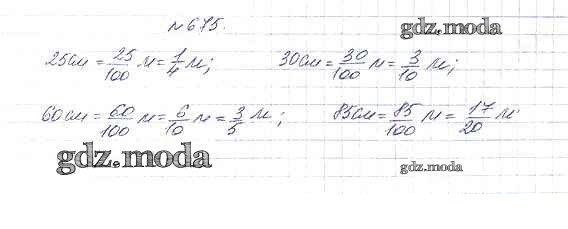 №675.
gdz.moda
25см = 25/100 м = 1/4 м; 30см = 30/100 м = 3/10 м;
60см = 60/100 м = 6/10 м = 3/5 м; 85см = 85/100 м = 17/20 м.
gdz.moda gdz.moda